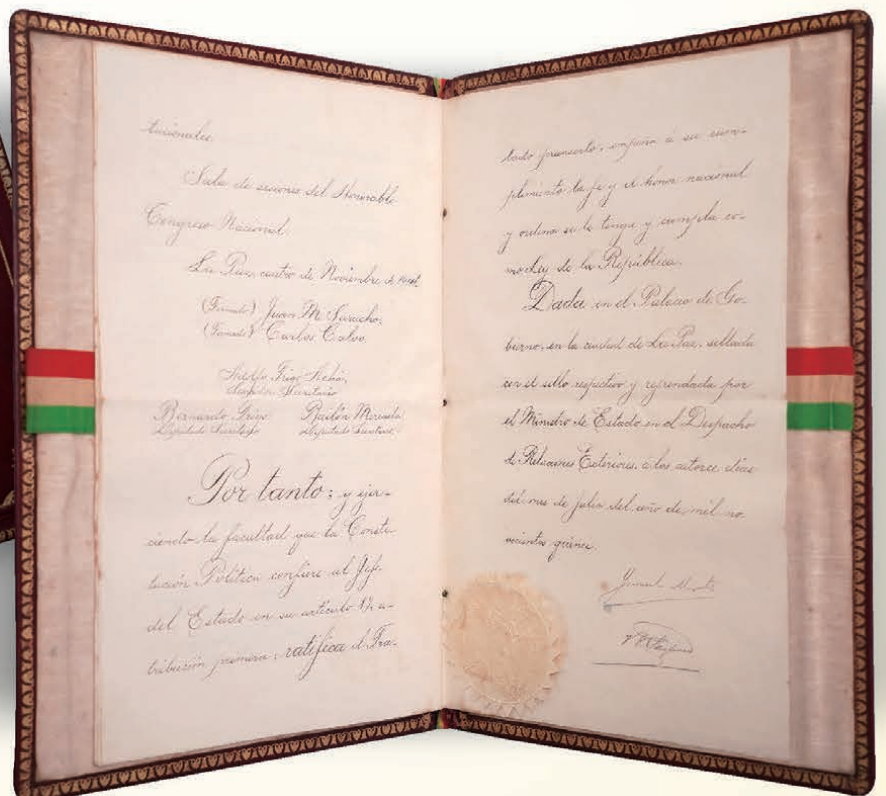 tucionales.
Sala de sesiones del Honorable
Congreso Nacional.
La Paz, cuatro de Noviembre de
(Firmado) Juan M. Saracho,
(Firmado) Carlos Calvo.
Diputado Secretario
Bernardo Bailón Mercado
Diputado Secretario Diputado Secretario.
Por tanto; y ejer-
ciendo la facultad que la Consti-
tución Política confiere al Jefe
del Estado en su artículo a-
tribución primera; ratifica el Tra-
tado y su cum-
plimiento la fe y el honor nacional
y ordena se le tenga y cumpla co-
mo Ley de la República.
Dada en el Palacio de Go-
bierno, en la ciudad de La Paz, sellada
con el sello respectivo y refrendada por
el Ministro de Estado en el Despacho
de Relaciones Exteriores, á los catorce días
del mes de julio del año de mil no-
vecientos quince.
Ismael Montes